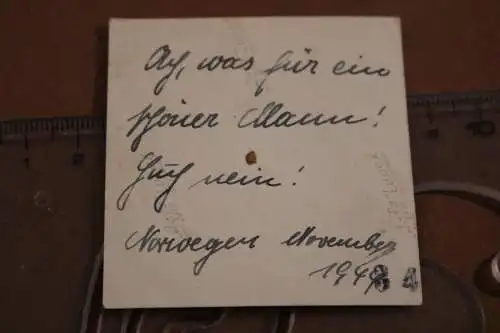 Ach, was für ein
schöner Mann!
Huch nein!
Norwegen November
194
84